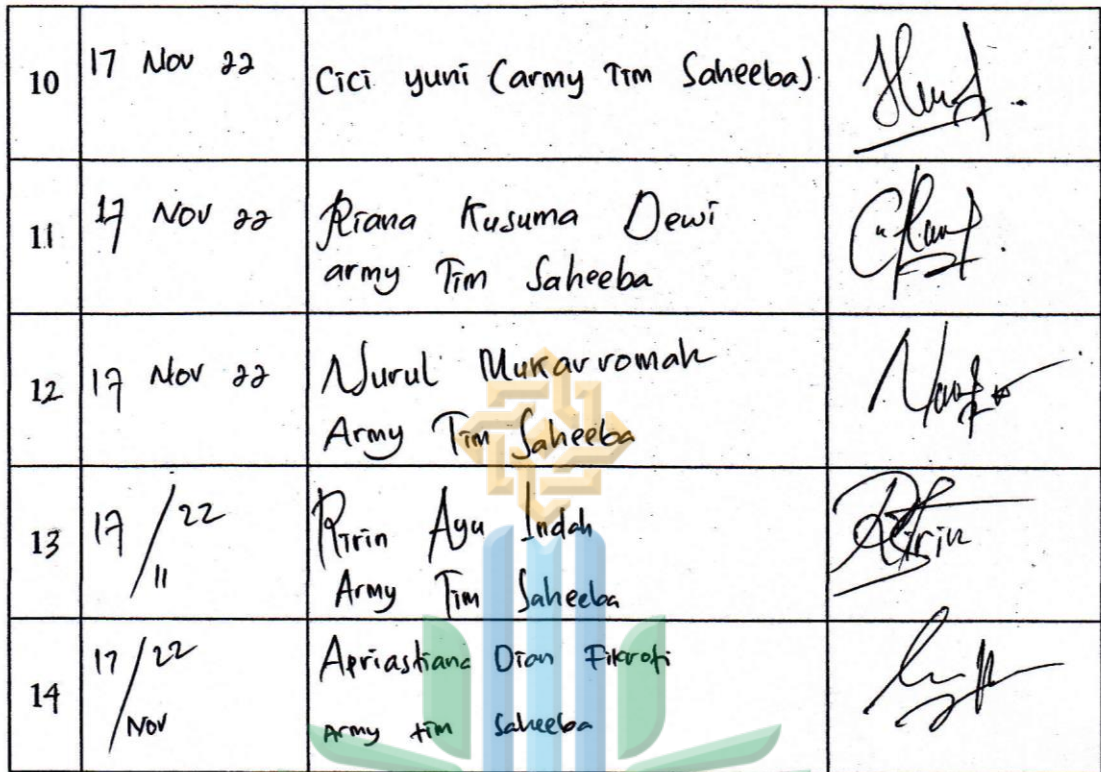 10 17 Nov 22 Cici yuni (army Tim Saheeba)
11 17 Nov 22 Riana Kusuma Dewi
army Tim Saheeba
12 17 Nov 22 Nurul Mukarromah
Army Tim Saheeba
13 17/22 Ririn Ayu Indah Ririn
11 Army Tim Saheeba
14 17/22 Apriastiana Dian
Nov Army tim Saheeba